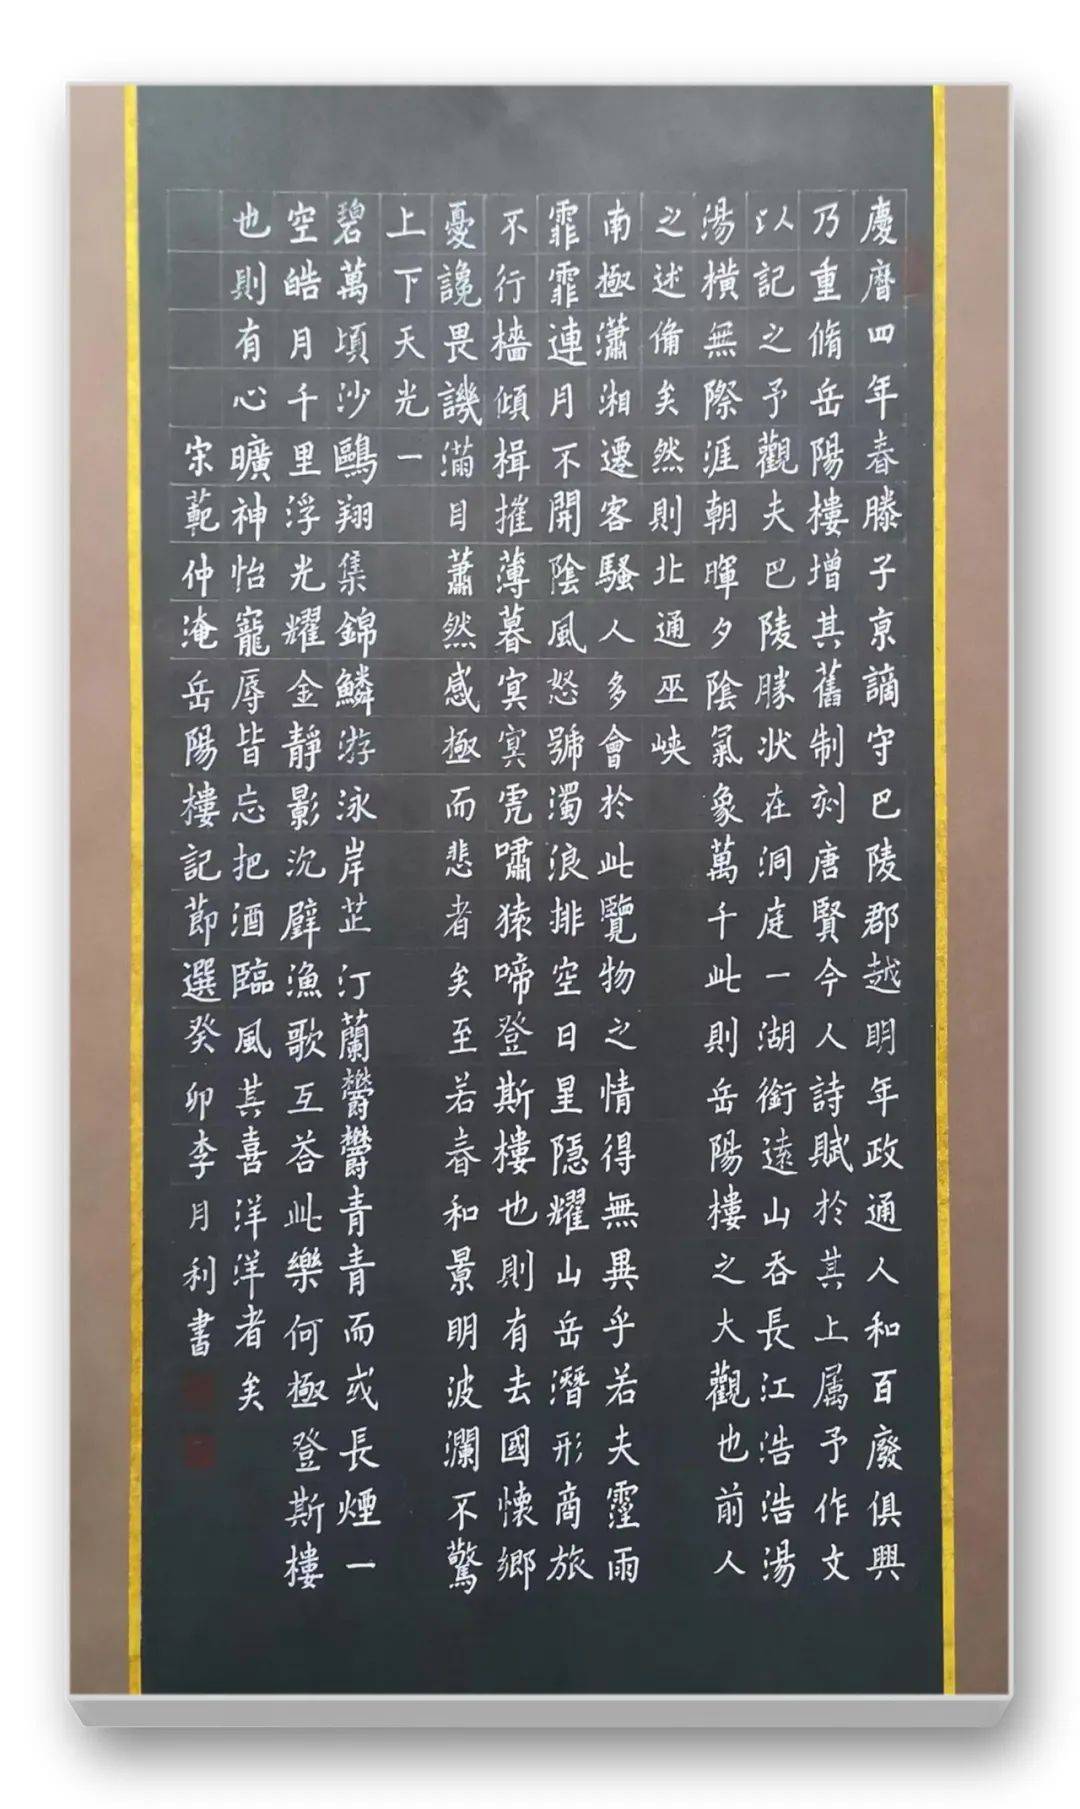 慶曆四年春滕子京謫守巴陵郡越明年政通人和百廢俱興
乃重脩岳陽樓增其舊制刻唐賢今人詩賦於其上属予作文
以記之予觀夫巴陵勝狀在洞庭一湖銜遠山吞長江浩浩湯
湯橫無際涯朝暉夕陰氣象萬千此則岳陽樓之大觀也前人
之述備矣然則北通巫峽
南極瀟湘遷客騷人多會於此覽物之情得無異乎若夫霪雨
霏霏連月不開陰風怒號濁浪排空日星隱耀山岳潛形商旅
不行檣傾楫摧薄暮冥冥虎嘯猿啼登斯樓也則有去國懷鄉
憂讒畏譏滿目蕭然感極而悲者矣至若春和景明波瀾不驚
上下天光一
碧萬頃沙鷗翔集錦鱗游泳岸芷汀蘭欝欝青青而或長煙一
空皓月千里浮光耀金靜影沉璧漁歌互荅此樂何極登斯樓
也則有心曠神怡寵辱皆忘把酒臨風其喜洋洋者矣
宋范仲淹岳陽樓記節選癸卯李月利書